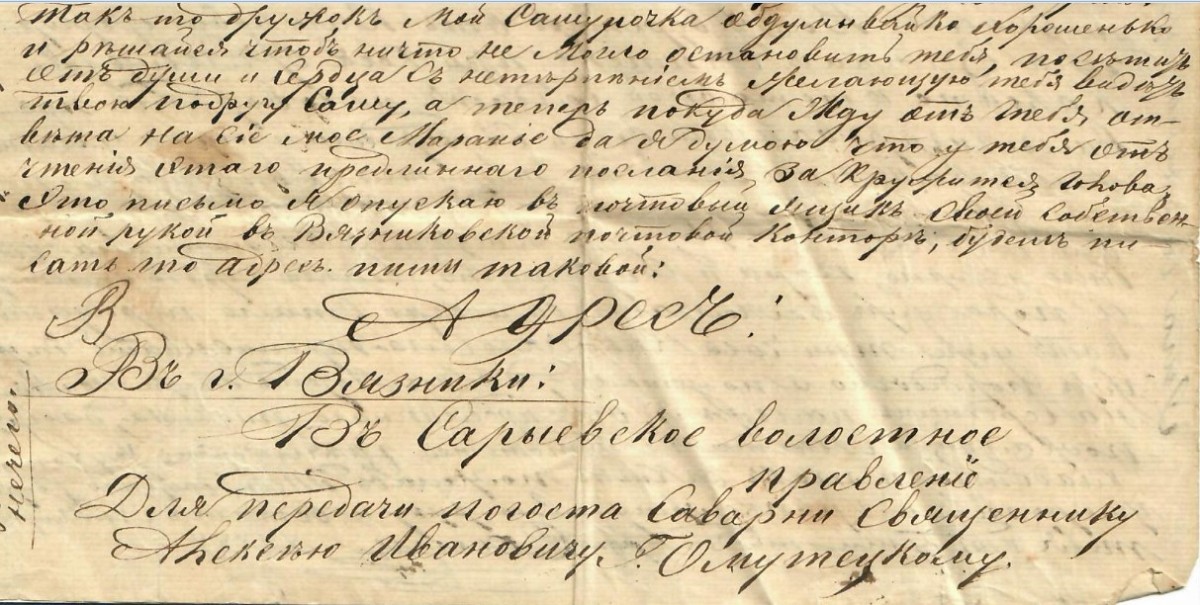 такъ то дружокъ мой Сашурочка обдумывайко хорошенько
и рѣшайся чтобъ ничто не могло остановить тебя, посѣтить
отъ души и сердца съ нетѣрпѣніемъ желающую тебя видѣть
твою подругу Сашу, а теперь покуда жду отъ тебя от-
вѣта на сіе мое маранье да я думою что у тебя отъ
чтенія етаго предлиннаго посланія закружится голова,
Это письмо я опускаю въ почтовый ящикъ своей собствен-
ной рукой въ Вязниковской почтовой конторѣ, будешь пи-
сать то адресъ пиши таковой:
В Адресъ:
Въ г. Вязники:
Въ Сарыевское волостное
правленіе
Для передачи погоста Саварни Священнику
Алексѣю Ивановичу Г. Омутецкому.
нечего.